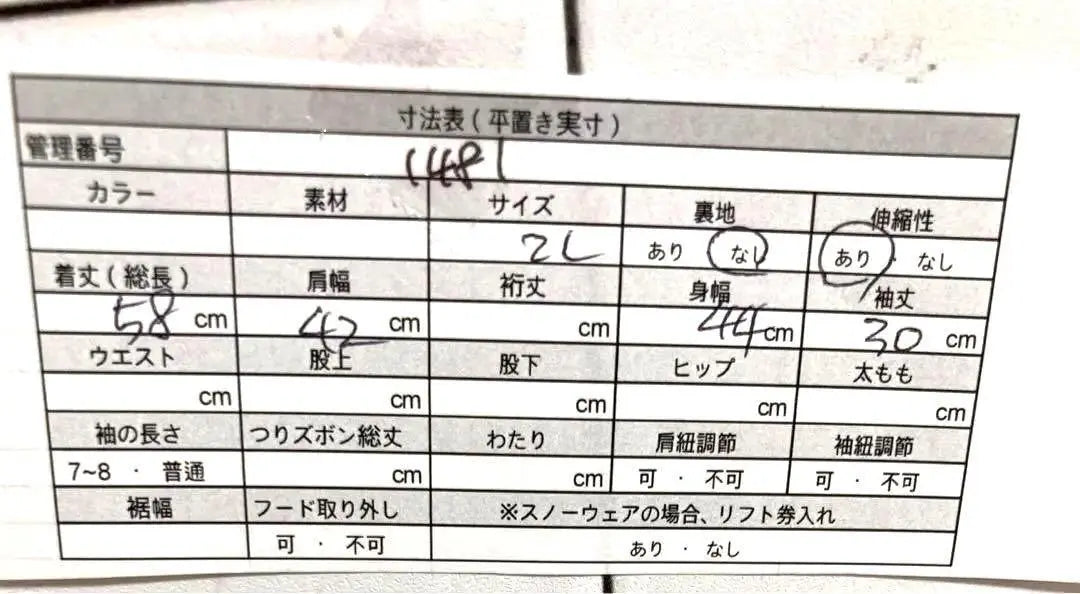 寸法表(平置き実寸)
管理番号 1481
カラー 素材 サイズ 裏地 伸縮性
2L あり なし あり · なし
着丈(総長) 肩幅 裄丈 身幅 袖丈
58 cm 42 cm cm 44 cm 30 cm
ウエスト 股上 股下 ヒップ 太もも
cm cm cm cm cm
袖の長さ つりズボン総丈 わたり 肩紐調節 袖紐調節
7~8 · 普通 cm cm 可 · 不可 可 · 不可
裾幅 フード取り外し ※スノーウェアの場合、リフト券入れ
可 · 不可 あり · なし